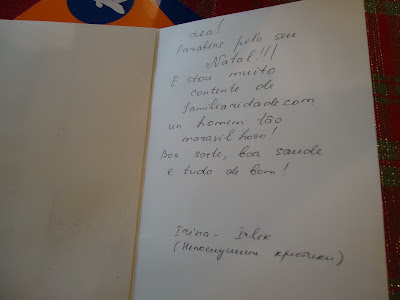 Lea!
Parabins pelo seu
Natal!!!
E stou muito
contente de
familiaridade com
un homem tão
maravilhoso!
Boa sorte, boa saude
e tudo de bom!
Irina - Irlek
(Непослушные крестики)